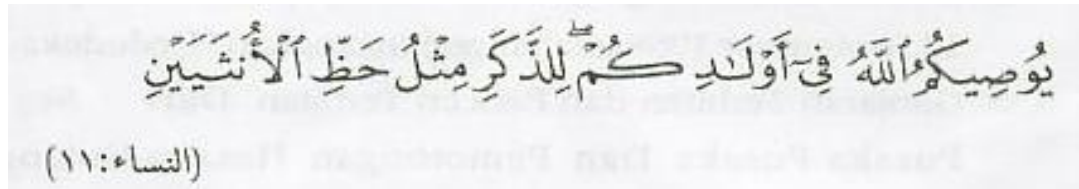 يُوصِيكُمُ ٱللَّهُ فِىٓ أَوْلَـٰدِكُمْ ۖ لِلذَّكَرِ مِثْلُ حَظِّ ٱلْأُنثَيَيْنِ
(النساء:١١)